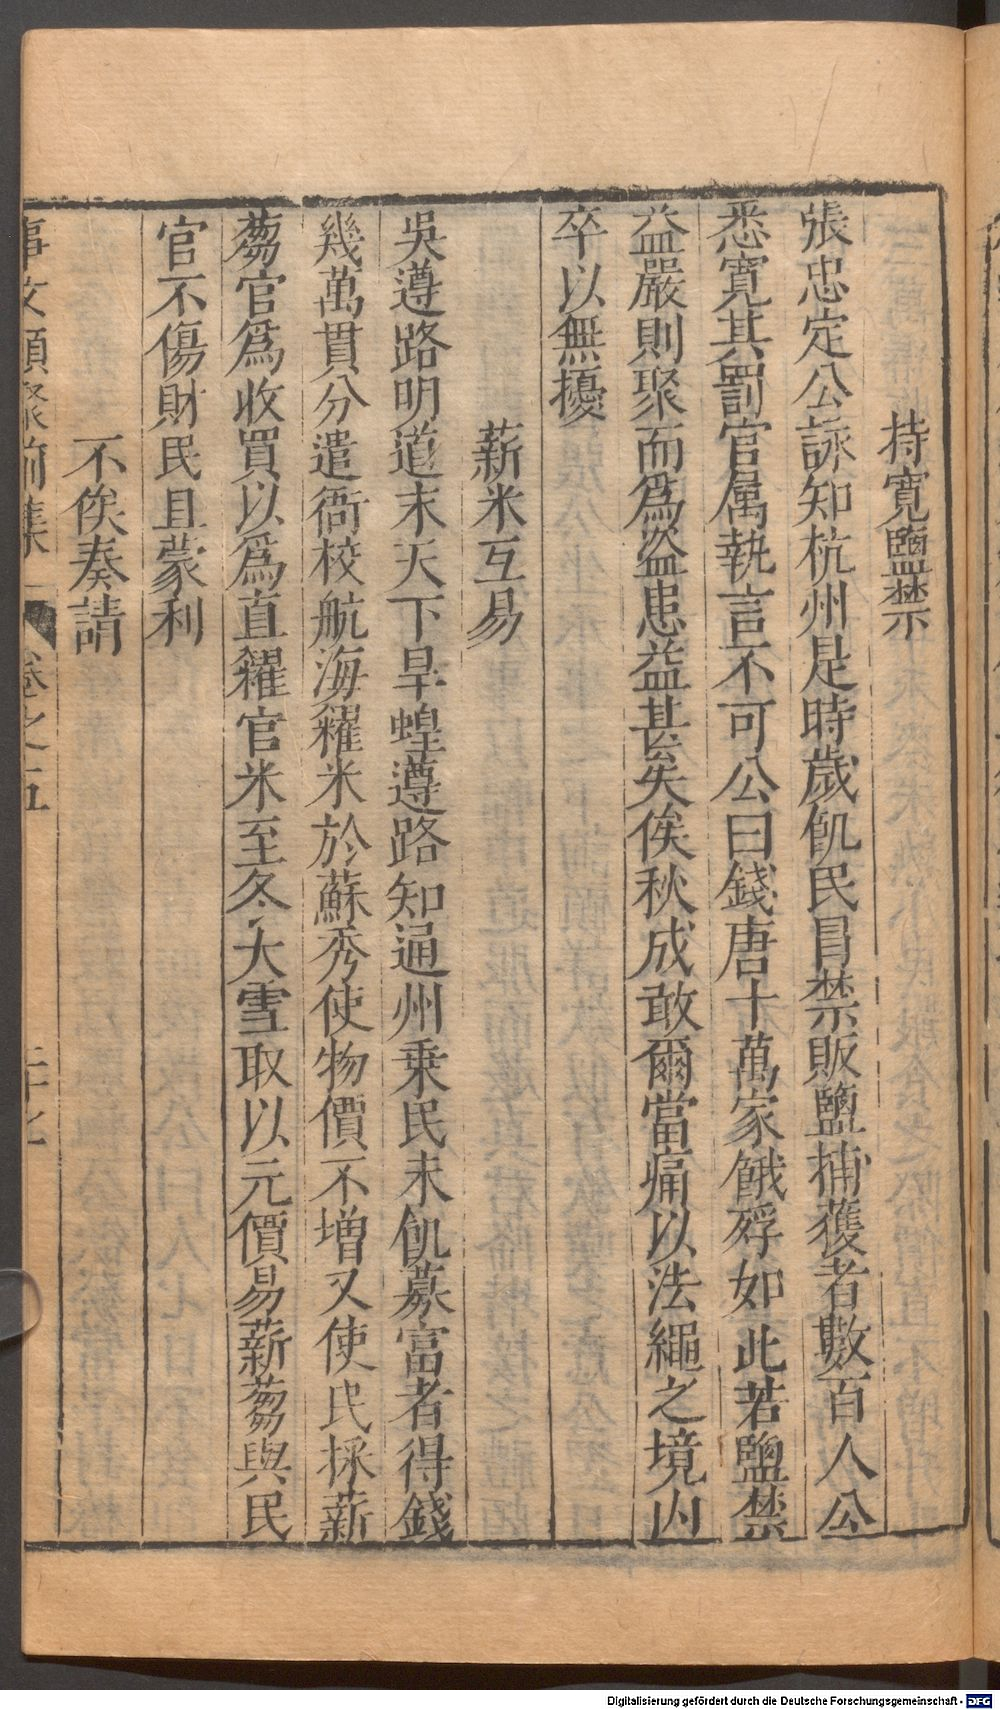 持寬鹽禁
張忠定公詠知杭州是時歲飢民冒禁販鹽捕獲者數百人公
悉寬其罰官属執言不可公曰錢唐十萬家餓殍如此若鹽禁
益嚴則聚而爲盗患益甚矣俟秋成敢爾當痛以法繩之境内
卒以無擾
薪米互易
吳遵路明道末天下旱蝗遵路知通州乗民未飢募富者得錢
幾萬貫分遣衙校航海糴米於蘇秀使物價不增又使民採薪
蒭官爲收買以爲直糴官米至冬大雪取以元價易薪蒭與民
官不傷財民且蒙利
不俟奏請
事文類聚前集 卷之五 二十七
Digitalisierung gefördert durch die Deutsche Forschungsgemeinschaft - DFG